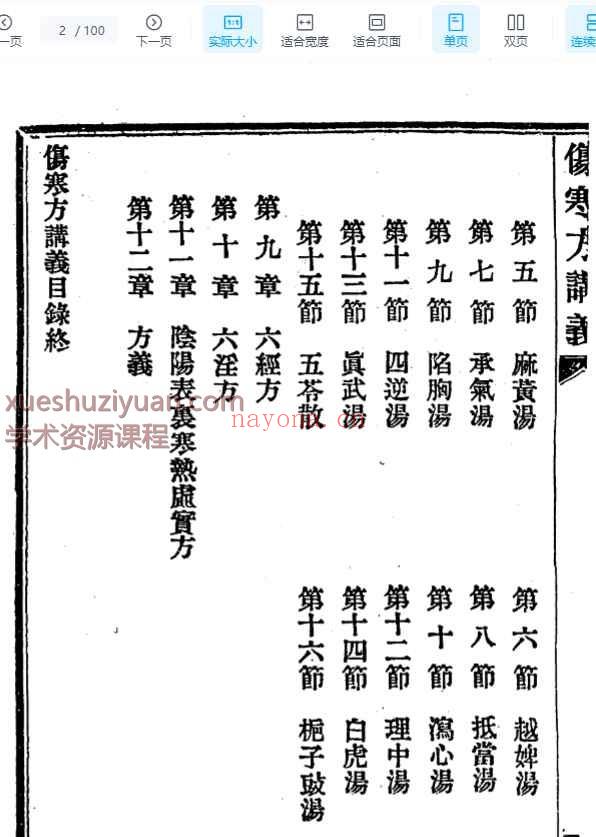 一页
2 / 100
下一页
实际大小
适合宽度
适合页面
单页
双页
连续
傷寒方講義
第五節 麻黃湯
第六節 越婢湯
第七節 承氣湯
第八節 抵當湯
第九節 陷胸湯
第十節 瀉心湯
第十一節 四逆湯
第十二節 理中湯
第十三節 眞武湯
第十四節 白虎湯
第十五節 五苓散
第十六節 梔子豉湯
第九章 六經方
第十章 六淫方
第十一章 陰陽表裏寒熱虛實方
第十二章 方義
傷寒方講義目錄終
xueshuziyuan.com
学术资源课程